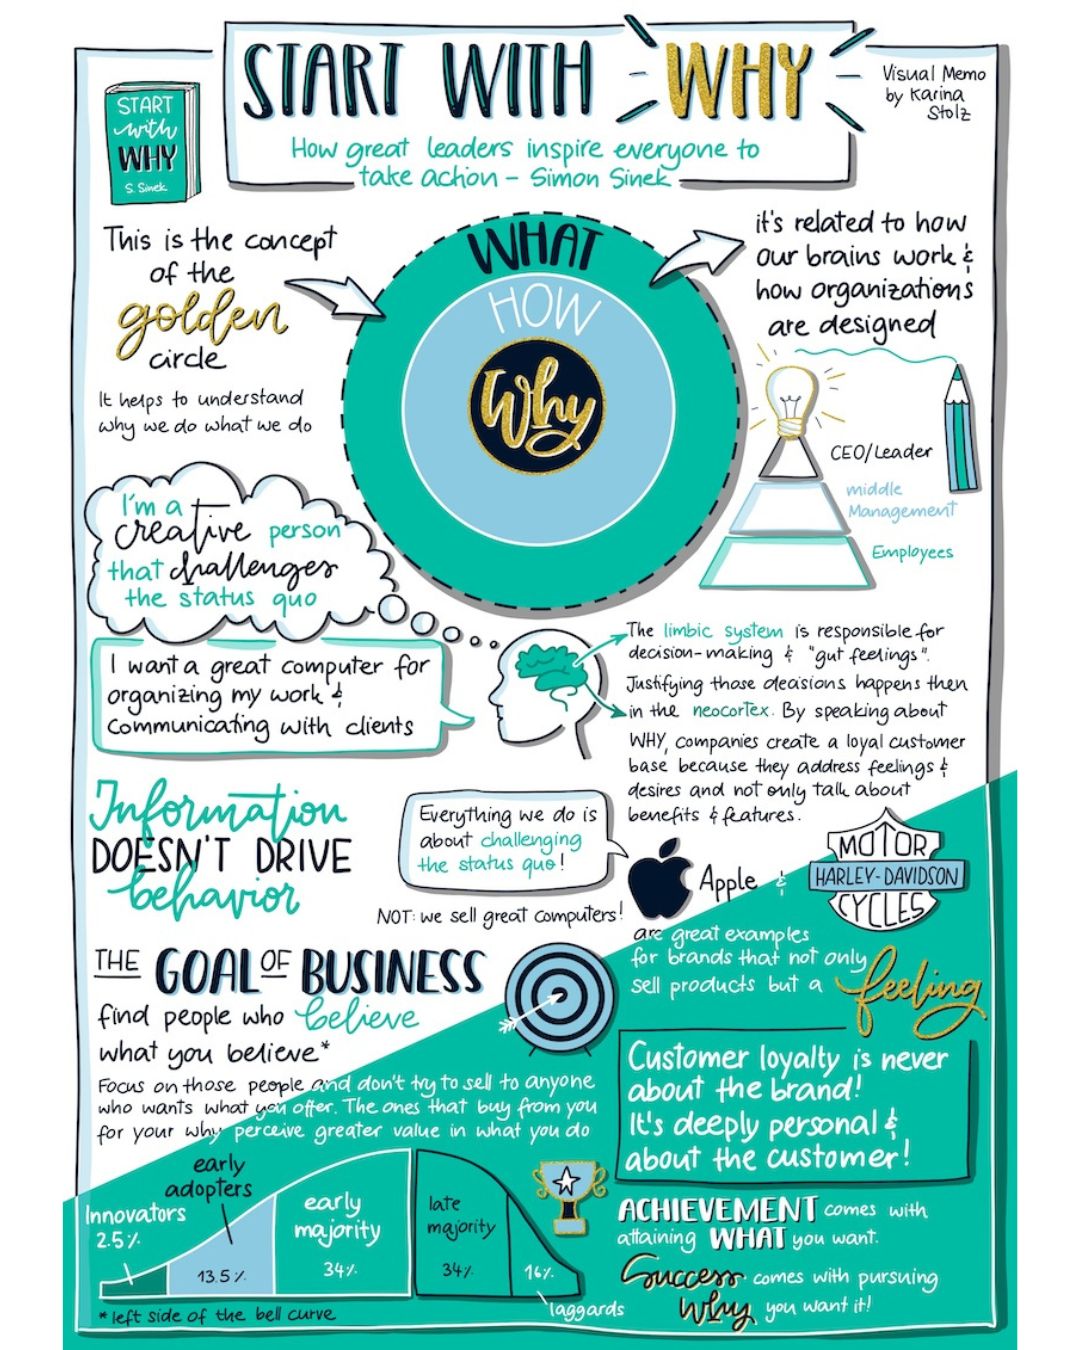 START WITH WHY
How great leaders inspire everyone to
take action - Simon Sinek
Visual Memo
by Karina
Stolz
START
with
WHY
S. Sinek
This is the concept
of the
golden
circle
It helps to understand
why we do what we do
WHAT
HOW
Why
it's related to how
our brains work &
how organizations
are designed
CEO/Leader
middle
Management
Employees
I'm a
creative person
that challenges
the status quo
I want a great computer for
organizing my work &
communicating with clients
The limbic system is responsible for
decision-making & "gut feelings".
Justifying those decisions happens then
in the neocortex. By speaking about
WHY, companies create a loyal customer
base because they address feelings &
desires and not only talk about
benefits & features.
Information
DOESN'T DRIVE
behavior
Everything we do is
about challenging
the status quo!
NOT: we sell great computers!
Apple &
MOTOR
HARLEY-DAVIDSON
CYCLES
are great examples
for brands that not only
sell products but a feeling
THE GOAL OF BUSINESS
find people who believe
what you believe*
Focus on those people and don't try to sell to anyone
who wants what you offer. The ones that buy from you
for your why perceive greater value in what you do
Customer loyalty is never
about the brand!
It's deeply personal &
about the customer!
Innovators
2.5%
early
adopters
13.5%
early
majority
34%
late
majority
34%
16%
laggards
*left side of the bell curve
ACHIEVEMENT comes with
attaining WHAT you want.
Success comes with pursuing
Why you want it!